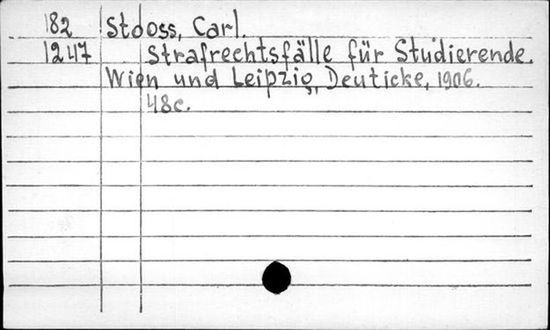 182 Stooss, Carl.
1247 Strafrechtsfälle für Studierende.
Wien und Leipzig, Deuticke, 1906.
48c.